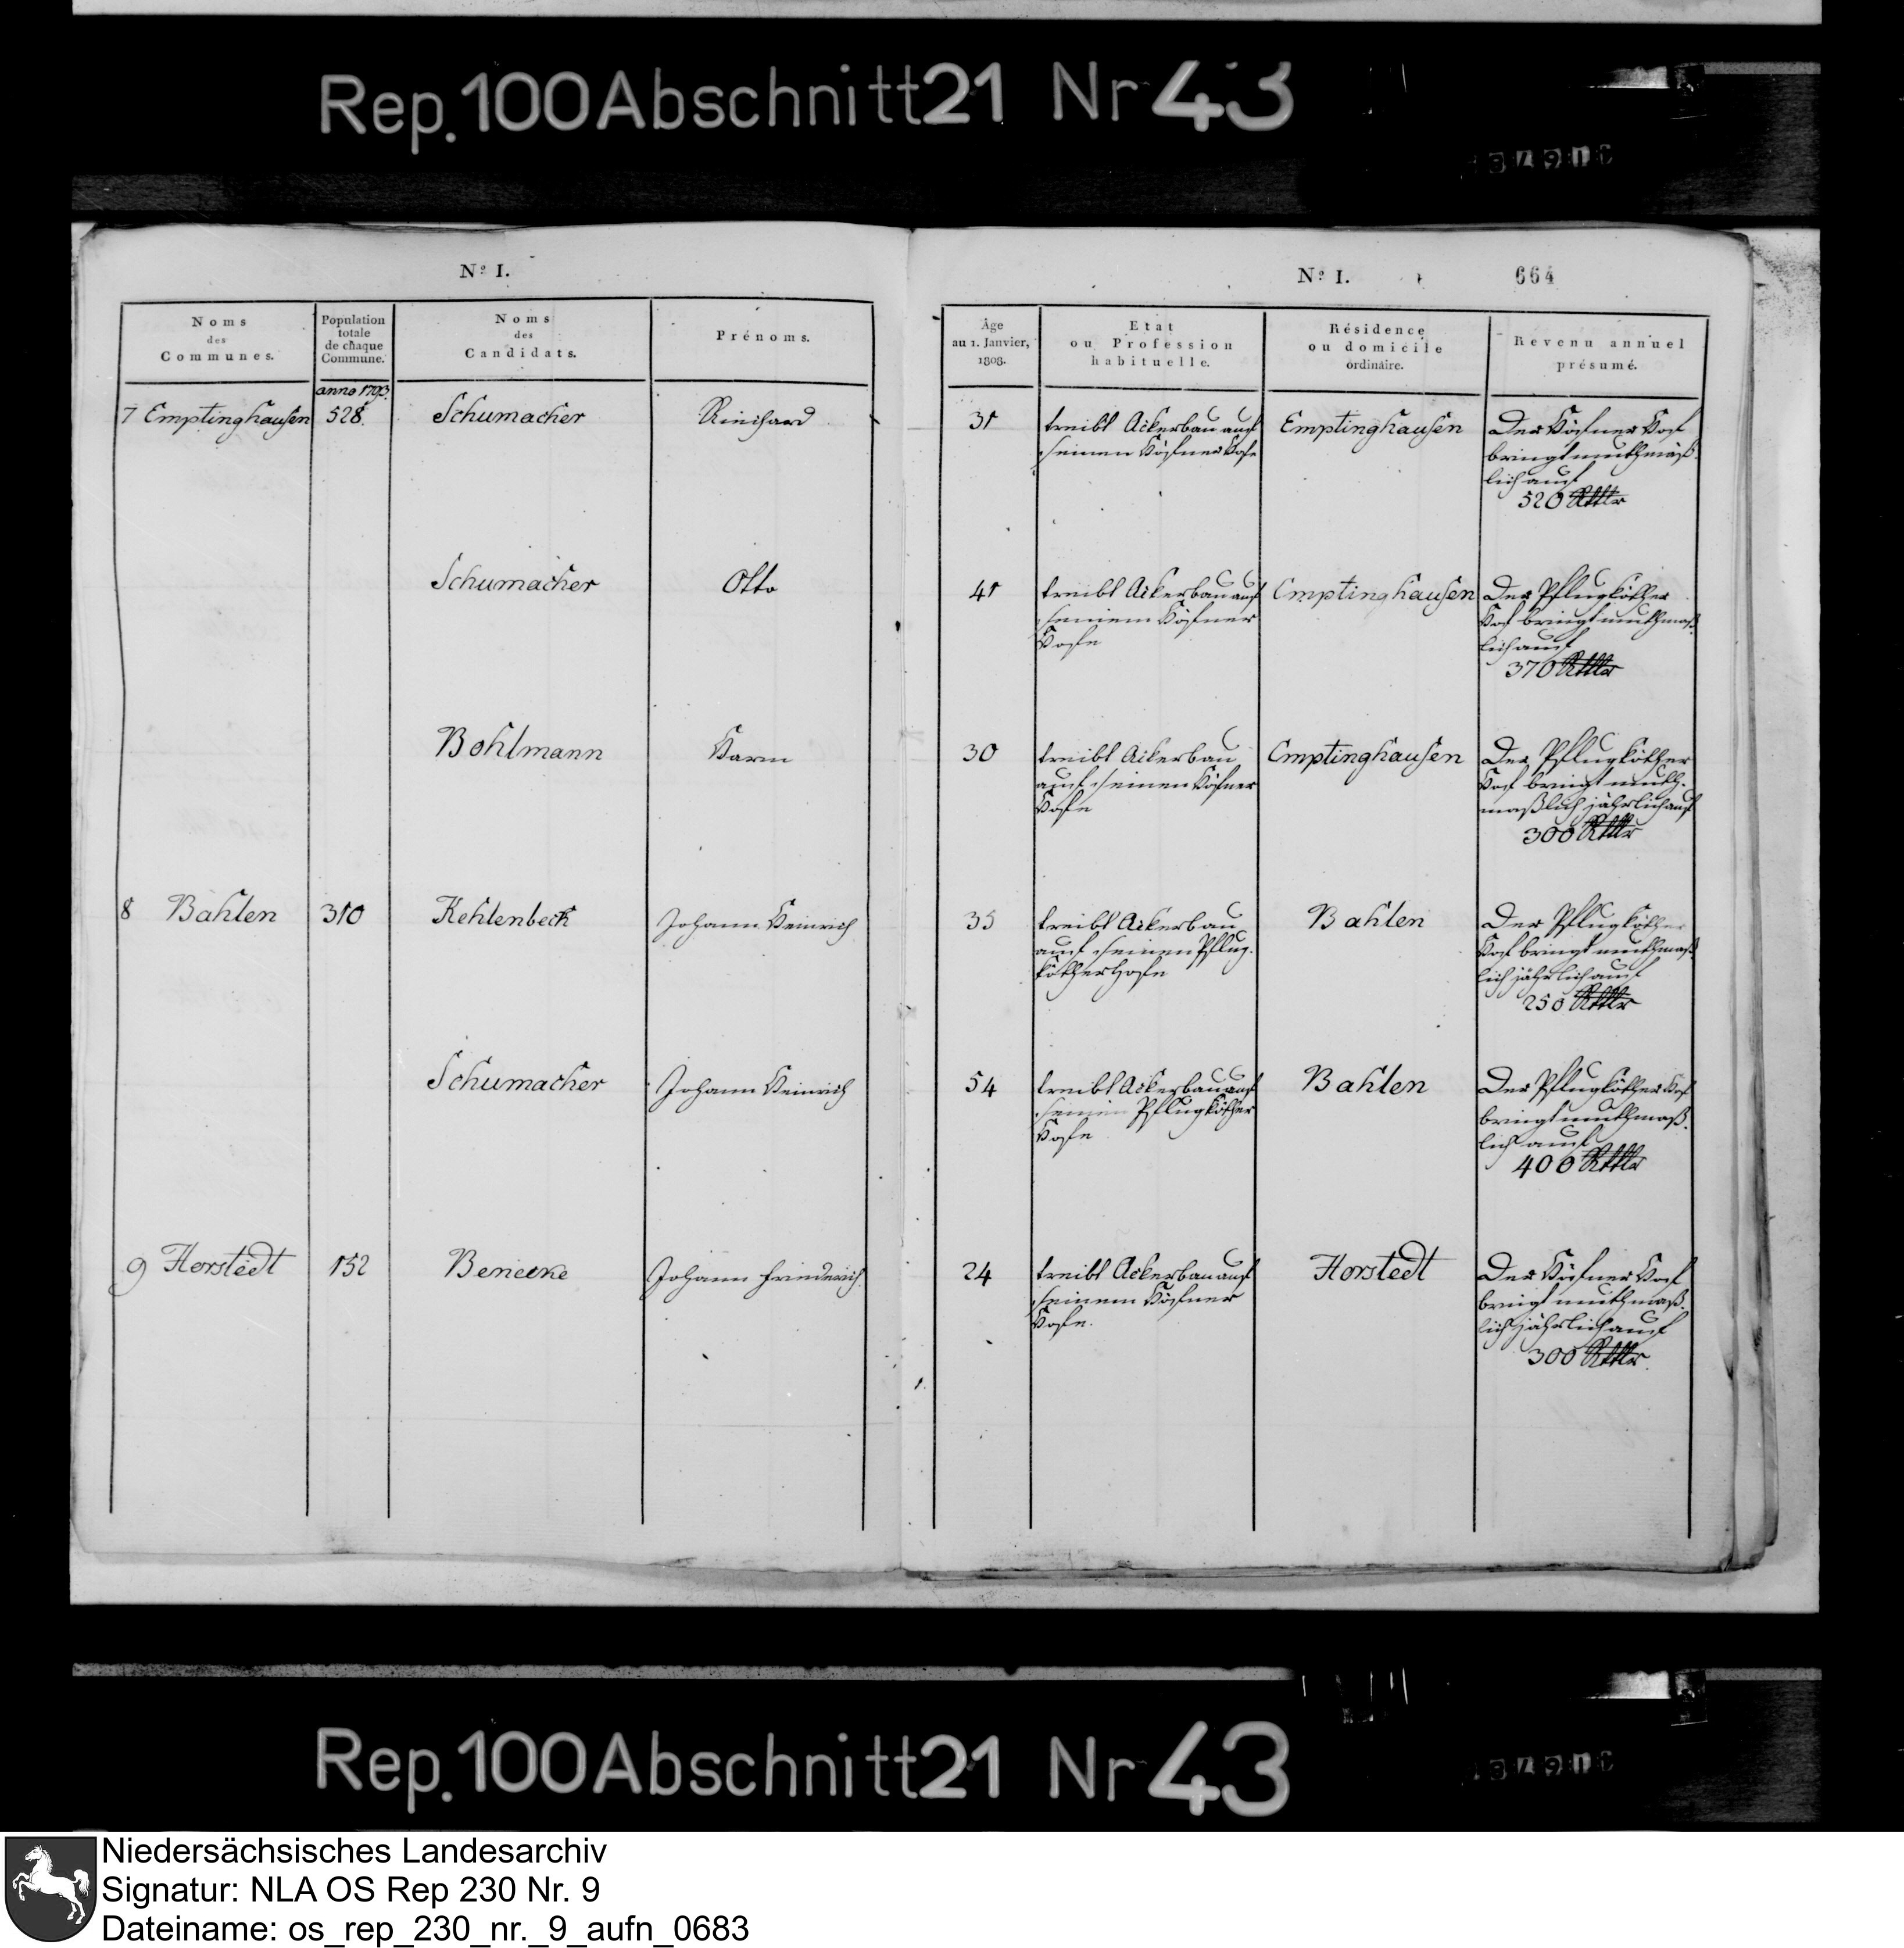 Rep.100 Abschnitt 21 Nr 43
Nº I.
Noms
des
Communes.
Population
totale
de chaque
Commune.
Noms
des
Candidats.
Prénoms.
anno 1793.
7 Emptinghausen 528. Schumacher Rinchard
Schumacher Otto
Bohlmann Harm
8 Bahlen 310 Kehlenbeck Johann Heinrich
Schumacher Johann Heinrich
9 Horstedt 152 Benecke Johann Friederich
Nº I.
664
Âge
au 1. Janvier,
1808.
Etat
ou Profession
habituelle.
Résidence
ou domicile
ordinaire.
Revenu annuel
présumé.
31 treibt Ackerbau auf
seinen Höfner Hofe
Emptinghausen
Der Höfner Hof
bringt muthmaß-
lich auf
520 Rthlr
41 treibt Ackerbau auf
seinem Höfner
Hofe
Emptinghausen
Der Pflugköther
Hof bringt muthmaß-
lich auf
370 Rthlr
30 treibt Ackerbau
auf seinen Höfner
Hofe
Emptinghausen
Der Pflugköther
Hof bringt muth-
maßlich jährlich auf
300 Rthlr
35 treibt Ackerbau
auf seinen Pflug-
köther Hofe
Bahlen
Der Pflugköther
Hof bringt muthmaß-
lich jährlich auf
250 Rthlr
54 treibt Ackerbau auf
seinen Pflugköther
Hofe
Bahlen
Der Pflugköther Hof
bringt muthmaß-
lich auf
400 Rthlr
24 treibt Ackerbau auf
seinem Höfner
Hofe.
Horstedt
Der Höfner Hof
bringt muthmaß-
lich jährlich auf
300 Rthlr.
Rep.100 Abschnitt 21 Nr 43
Niedersächsisches Landesarchiv
Signatur: NLA OS Rep 230 Nr. 9
Dateiname: os_rep_230_nr._9_aufn_0683